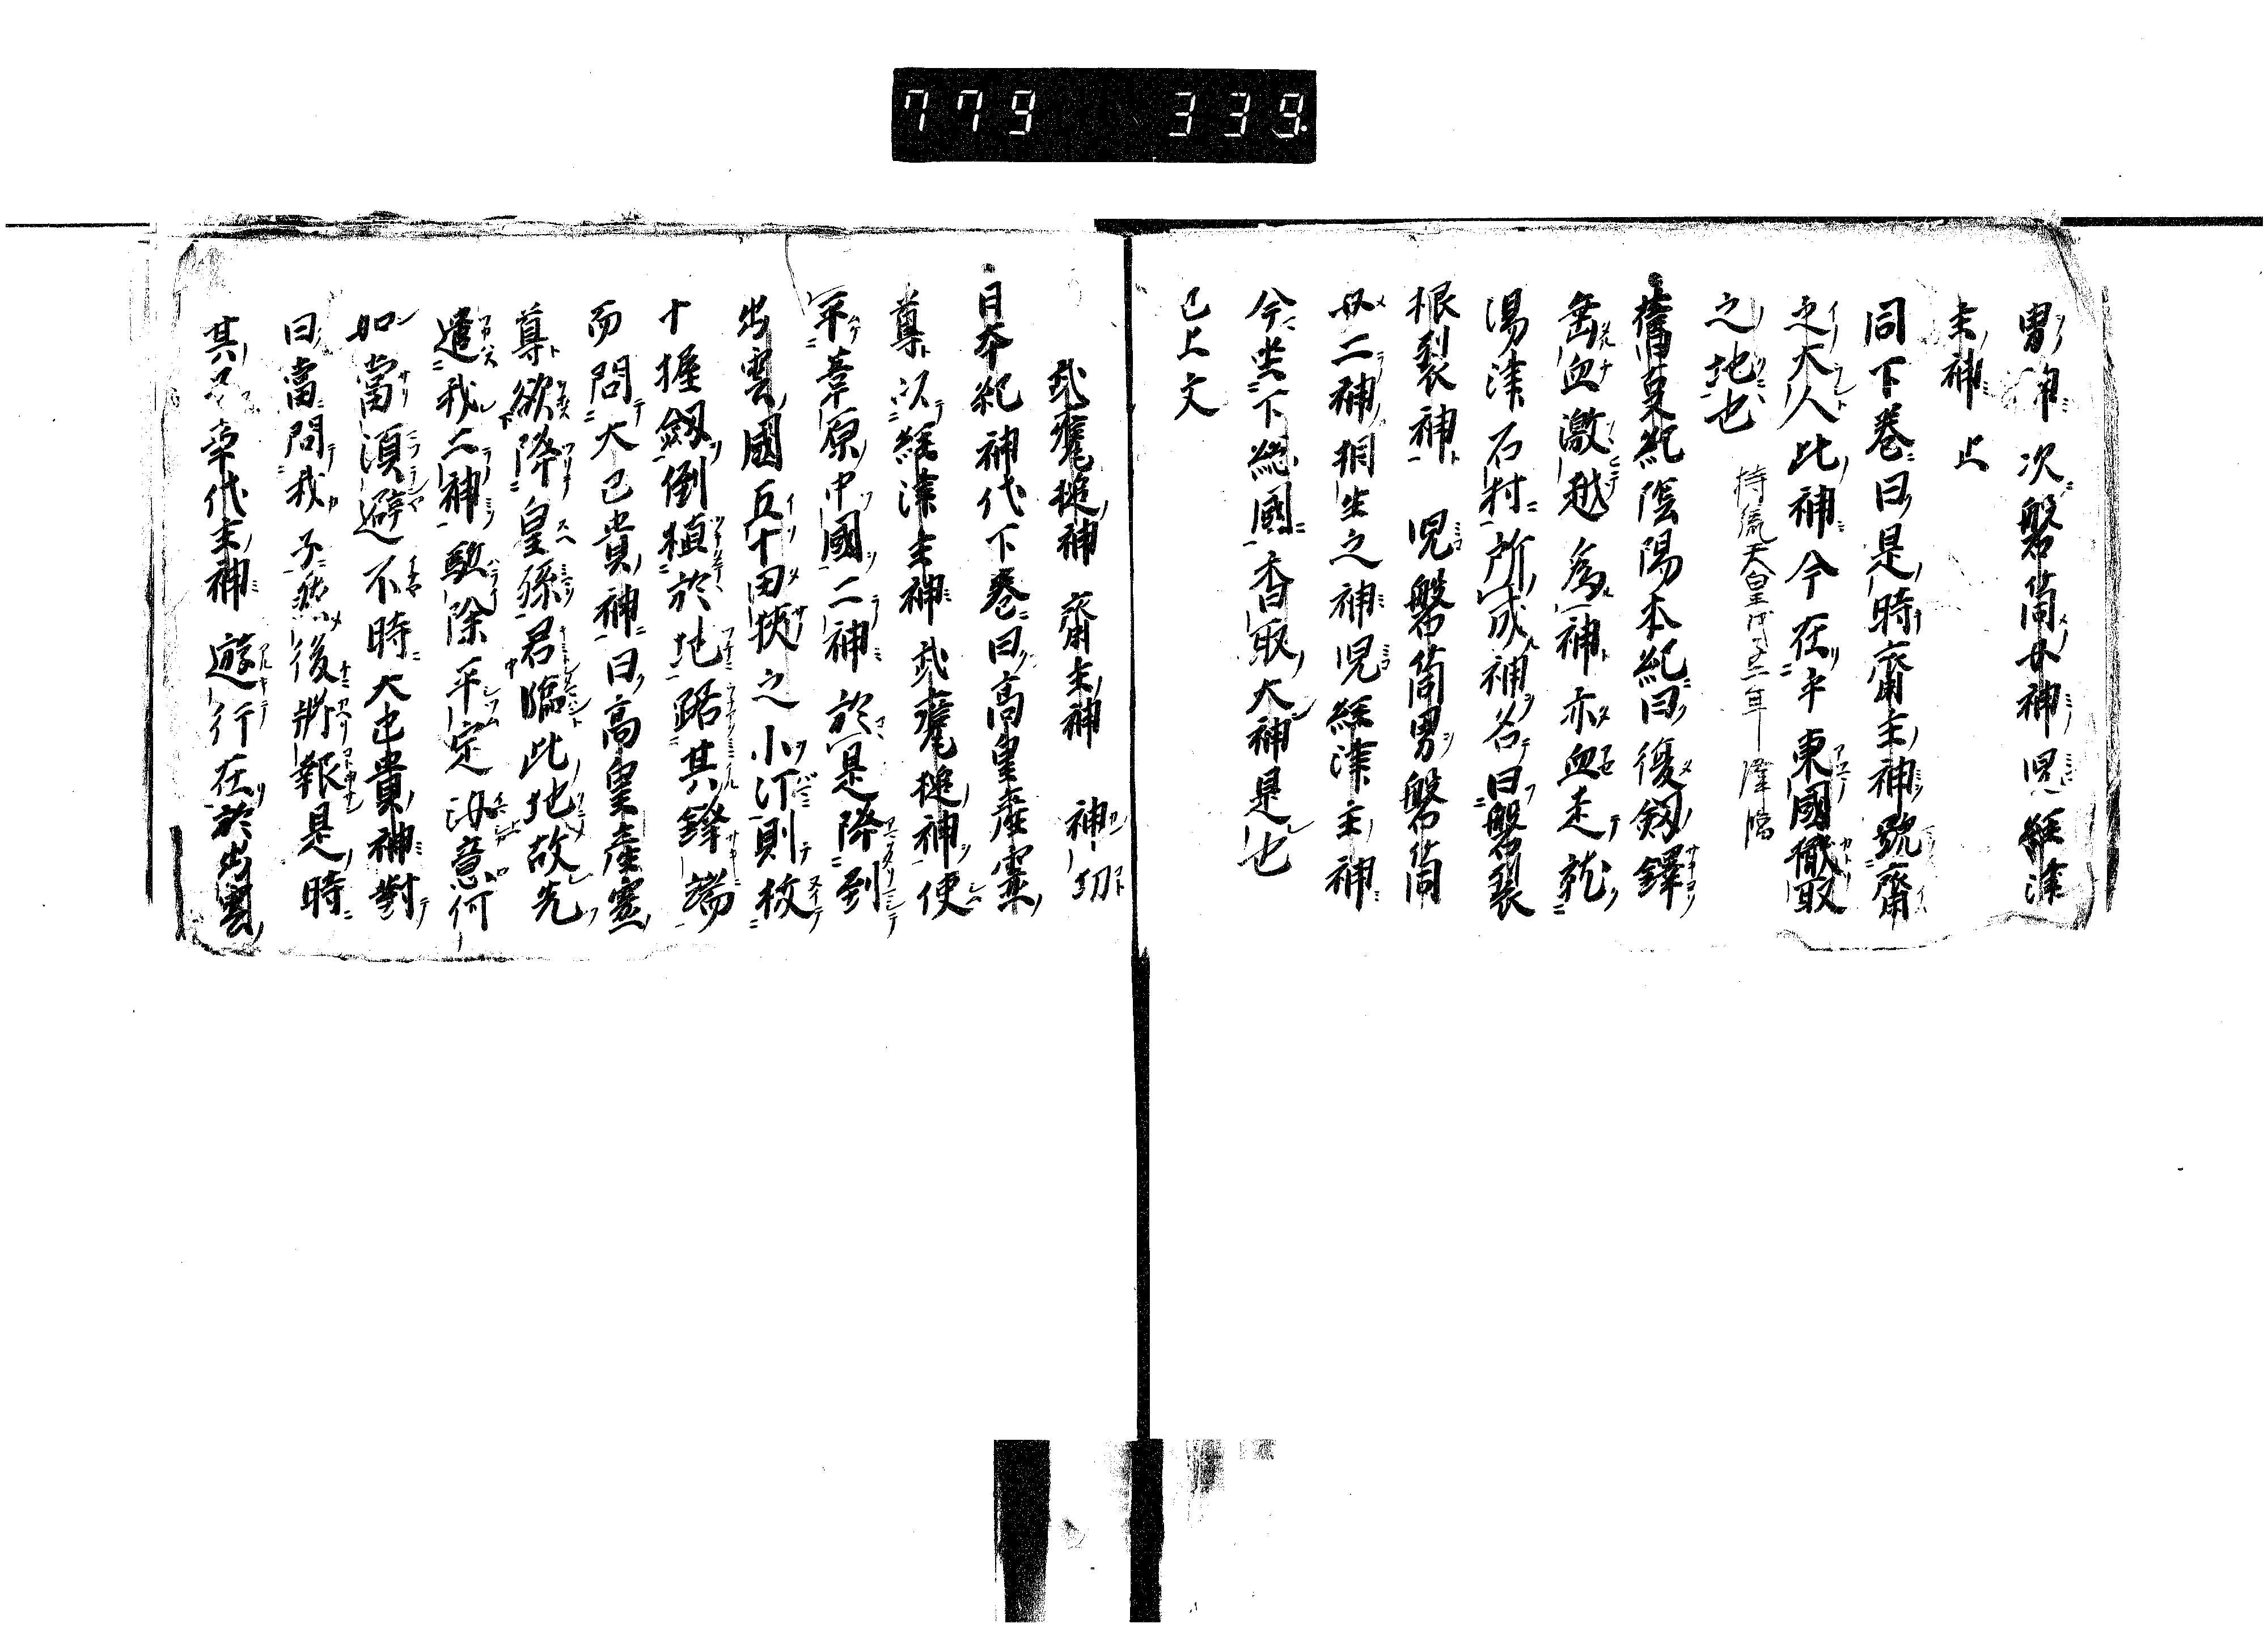 779 339
男神次磐筒女神児経津
主神止
同下巻曰是時齋主神號齋
之大人此神今在乎東國檝取
之地也 持統天皇 年
舊事紀陰陽本紀曰復釼鐸
血激越為神亦血走就
湯津石村所成神名曰磐裂
根裂神児磐筒男磐筒
女二神相生之神児経津主神
今坐下総國香取大神是也
已上文
武甕槌神齋主神 神功
日本紀神代下巻曰高皇産霊
尊以経津主神武甕槌神使
平葦原中國二神於是降到
出雲國五十田狹之小汀則拔
十握釼倒植於地踞其鋒端
而問大己貴神曰高皇産霊
尊欲降皇孫君臨此地故先
遣我二神駈除平定汝意何
如當須避不時大己貴神對
曰當問我子然後将報是時
其子事代主神遊行在於出雲